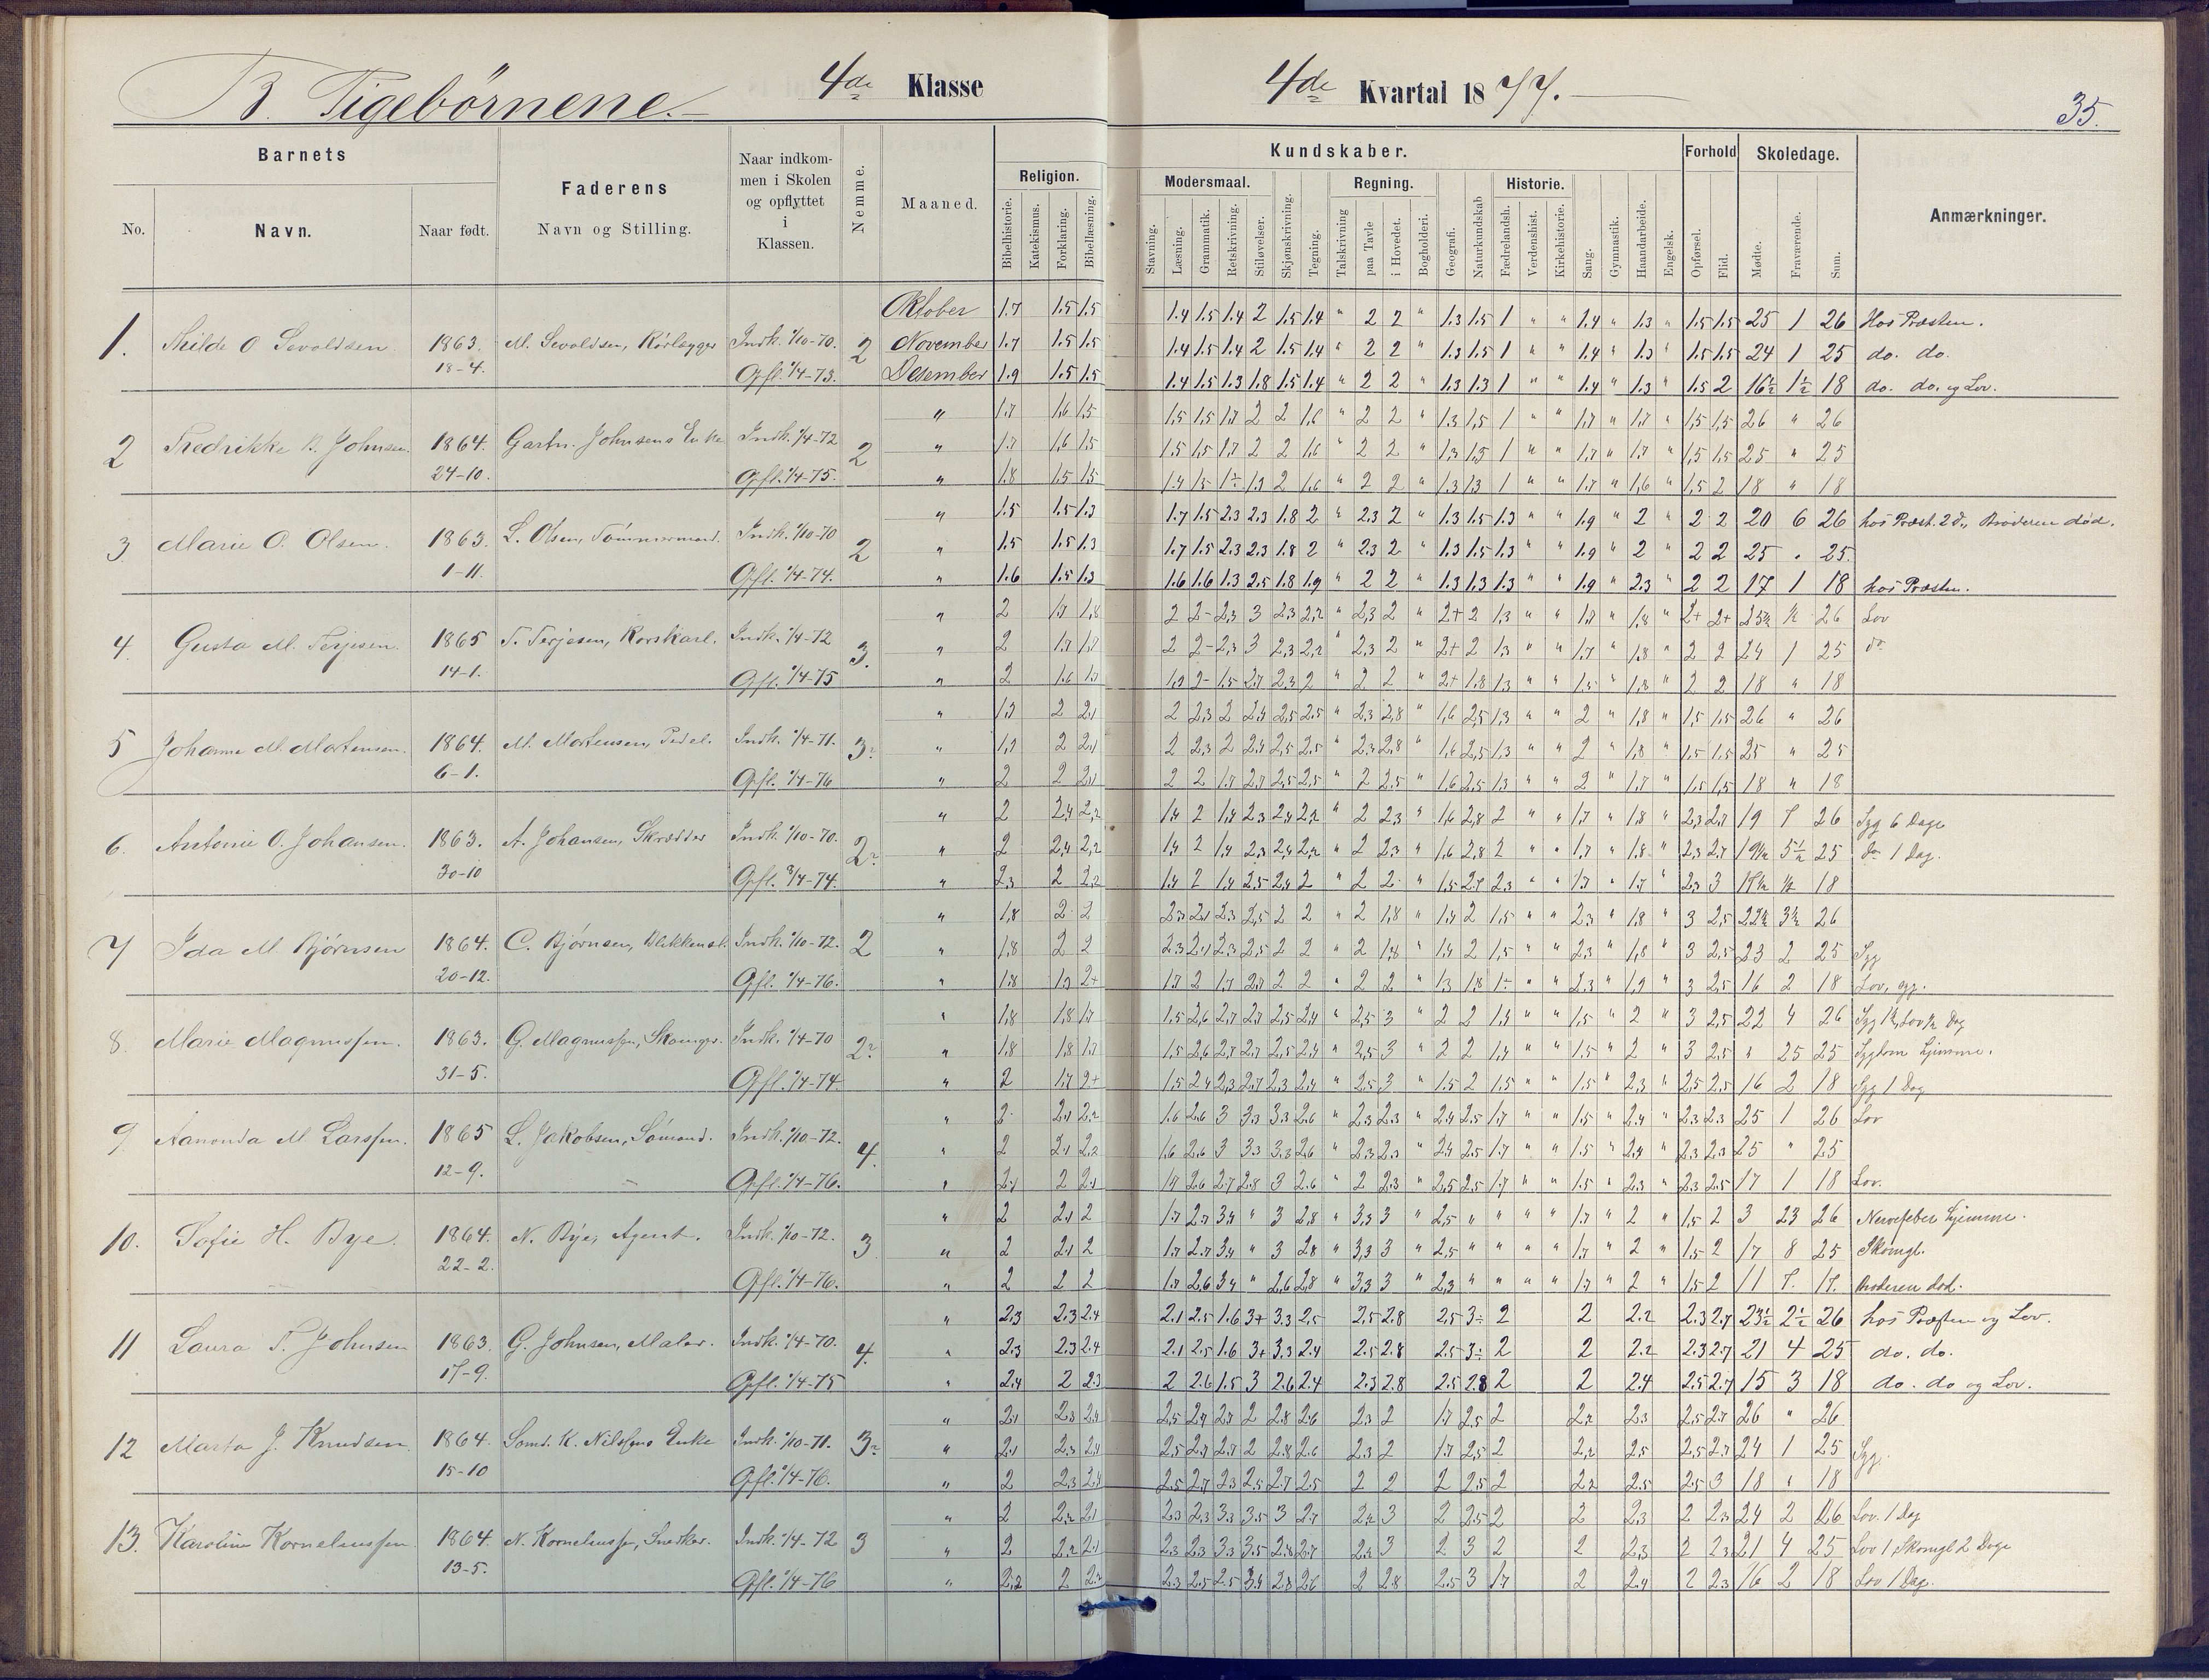 B. Tigebörnene.
4de Klasse
4de Kvartal 1877.
35.
Barnets
No.
Navn.
Naar født.
Faderens
Navn og Stilling.
Naar indkom-
men i Skolen
og opflyttet
i
Klassen.
Nemme.
Maaned.
Religion.
Bibelhistorie.
Katekismus.
Forklaring.
Bibellæsning.
Kundskaber.
Modersmaal.
Stavning.
Læsning.
Grammatik.
Retskrivning.
Stiløvelser.
Skjønskrivning.
Tegning.
Regning.
Talskrivning
paa Tavle
i Hovedet.
Bogholderi.
Geografi.
Naturkundskab
Historie.
Fædrelandsh.
Verdenshist.
Kirkehistorie.
Sang.
Gymnastik.
Haandarbeide.
Engelsk.
Forhold
Opførsel.
Flid.
Skoledage.
Mødte.
Fraværende.
Sum.
Anmærkninger.
Oktober 1.7 1.5 1.5 1.4 1.5 1.4 2 1.5 1.4 " 2 2 " 1.3 1.5 1 " " 1.4 " 1.3 " 1.5 1.5 25 1 26 Hos Præsten.
1. Thilde O Sevoldsen 1863. M. Sevoldsen, Rörlægger Indk. 1/10-70. 2 November 1.7 1.5 1.5 1.4 1.5 1.4 2 1.5 1.4 " 2 2 " 1.3 1.5 1 " " 1.4 " 1.3 " 1.5 1.5 24 1 25 do. do.
18-4. Opfl. 1/4-73. Desember 1.9 1.5 1.5 1.4 1.5 1.3 1.8 1.5 1.4 " 2 2 " 1.3 1.3 1 " " 1.4 " 1.3 " 1.5 2 16½ 1½ 18 do. do. og Lov.
" 1.7 1.6 1.5 1.5 1.5 1.7 2 2 1.6 " 2 2 " 1.3 1.5 1 " " 1.7 " 1.7 " 1.5 1.5 26 " 26
2 Fredrikke B. Johnsen. 1864. Gartn. Johnsens Enke Indk. 1/4-72 2 " 1.7 1.6 1.5 1.5 1.5 1.7 2 2 1.6 " 2 2 " 1.3 1.5 1 " " 1.7 " 1.7 " 1.5 1.5 25 " 25
24-10. Opfl. 1/4-75. " 1.8 1.5 1.5 2 1.6 " 2 2 " 1.3 1.3 1 " " 1.7 " 1.6 " 1.5 2 18 " 18
" 1.5 1.5 1.3 1.7 1.5 2.3 2.3 1.8 2 " 2.3 2 " 1.3 1.5 1.3 " " 1.9 " 2 " 2 2 20 6 26 hos Præst. 2 d., Broderen död.
3 Marie O. Olsen. 1863. L. Olsen, Tömmermand. Indk. 1/10-70 2 " 1.5 1.5 1.3 1.7 1.5 2.3 2.3 1.8 2 " 2.3 2 " 1.3 1.5 1.3 " " 1.9 " 2 " 2 2 25 " 25.
1-11. Opfl. 1/4-74. " 1.6 1.5 1.3 1.6 1.6 1.3 2.5 1.8 1.9 " 2 2 " 1.3 1.3 1.3 " " 1.9 " 2.3 " 2 2 17 1 18 hos Præsten.
" 2 1.7 1.8 2 2- 2.3 3 2.3 2.2 " 2.3 2 " 2+ 2 1.3 " " 1.7 " 1.8 " 2+ 2+ 25½ ½ 26 Lov
4. Gusta M. Terjesen. 1865 T. Terjesen, Korskarl. Indk. 1/4-72 3. " 2 1.7 1.7 2 2- 2.3 3 2.3 2.2 " 2.3 2 " 2+ 2 1.3 " " 1.7 " 1.8 " 2 2 24 1 25 do
14-1. Opfl. 1/4-75 " 2 1.6 1.7 1.9 2- 1.5 2.7 2.3 2 " 2 2 " 2+ 1.8 1.3 " " 1.5 " 1.8 " 2 2 18 " 18
" 1.9 2 2.1 2 2.3 2 2.4 2.5 2.5 " 2.3 2.8 " 1.6 2.5 1.3 " " 2 " 1.8 " 1.5 1.5 26 " 26
5 Johanne M. Mortensen. 1864. M. Mortensen, Pedel. Indk. 1/4-71. 3. " 1.9 2 2.1 2 2.3 2 2.4 2.5 2.5 " 2.3 2.8 " 1.6 2.5 1.3 " " 2 " 1.8 " 1.5 1.5 25 " 25
6-1. Opfl. 1/4-76 " 2 2 2.1 2 2 1.7 2.7 2.5 2.5 " 2 2.5 " 1.6 2.5 1.3 " " 2 " 1.7 " 1.5 1.5 18 " 18
" 2 2.4 2.2 1.4 2 1.4 2.3 2.4 2.2 " 2 2.3 " 1.6 2.8 2 " " 1.7 " 1.8 " 2.3 2.7 19 7 26 Syg 6 Dage
6. Antonie O. Johansen. 1863. A. Johansen, Skrædder Indk. 1/10-70. 2. " 2 2.4 2.2 1.4 2 1.4 2.3 2.4 2.2 " 2 2.3 " 1.6 2.8 2 " " 1.7 " 1.8 " 2.3 2.7 19½ 5½ 25 do 1 Dag.
30-10 Opfl. 3/4-74. " 2.3 2 2.2 1.4 2 1.4 2.5 2.4 2 " 2 2 " 1.5 2.7 2.3 " " 1.7 " 1.7 " 2.3 3 17½ ½ 18
" 1.8 2 2 2.3 2.1 2.3 2.5 2 2 " 2 1.8 " 1.4 2 1.5 " " 2.3 " 1.8 " 3 2.5 22½ 3½ 26
7 Ida M. Björnsen 1864. C. Björnsen, Blikkensl. Indk. 1/10-72. 2 " 1.8 2 2 2.3 2.1 2.3 2.5 2 2 " 2 1.8 " 1.4 2 1.5 " " 2.3 " 1.8 " 3 2.5 23 2 25 Syg
20-12. Opfl. 1/4-76. " 1.8 1.9 2+ 1.7 2 1.7 2.7 2 2 " 2 2 " 1.3 1.8 " " 2.3 " 1.9 " 3 2.5 16 2 18 Lov, syg.
" 1.8 1.8 1.7 1.5 2.6 2.7 2.7 2.5 2.4 " 2.5 3 " 2 2 1.4 " " 1.5 " 2 " 3 2.5 22 4 26
8. Marie Magnussen. 1863. G. Magnussen, Skomager. Indk. 1/4-70 2. " 1.8 1.8 1.7 1.5 2.6 2.7 2.7 2.5 2.4 " 2.5 3 " 2 2 1.4 " " 1.5 " 2 " 3 2.5 " 25 25 Sygdom hjemme.
31-5. Opfl. 1/4-74. " 2 1.7 2+ 1.5 2.4 2.3 2.7 2.3 2.4 " 2.5 3 " 1.5 2 1.5 " " 1.5 " 2.3 " 2.5 2.5 16 2 18 Syg 1 Dag
" 2 2.1 2.2 1.6 2.6 3 3.3 3.3 2.6 " 2.3 2.3 " 2.4 2.5 1.7 " " 1.5 " 2.4 " 2.3 2.3 25 1 26 Lov
9. Aanonda M Larssen. 1865 L. Jakobsen, Sömand. Indk. 1/10-72. 4. " 2 2.1 2.2 1.6 2.6 3 3.3 3.3 2.6 " 2.3 2.3 " 2.4 2.5 1.7 " " 1.5 " 2.4 " 2.3 2.3 25 " 25
12-9. Opfl. 1/4-76. " 2.1 2 2.1 1.7 2.6 2.7 2.8 3 2.6 " 2 2.3 " 2.5 2.5 1.7 " " 1.5 " 2.3 " 2.3 2.5 17 1 18 Lov.
" 2 2.1 2 1.7 2.7 3.4 " 3 2.8 " 3.3 3 " 2.5 " " " " 1.7 " 2 " 1.5 2 3 23 26 Nervefeber hjemme.
10. Sofie H. Bye. 1864. N. Bye, Agent. Indk. 1/10-72. 3 " 2 2.1 2 1.7 2.7 3.4 " 3 2.8 " 3.3 3 " 2.5 " " " " 1.7 " 2 " 1.5 2 17 8 25 Skomgl.
22-2. Opfl. 1/4-76. " 2 2 2 1.7 2.6 3.4 " 2.6 2.8 " 3.3 3 " 2.3 " " " " 1.7 " 2 " 1.5 2 11 7. Broderen död.
" 2.3 2.3 2.4 2.1 2.5 1.6 3+ 3.3 2.5 2.5 2.8 2.5 3÷ 2 2 2.2 2.3 2.7 23½ 2½ 26 hos Præsten og Lov.
11 Laura T. Johnsen 1863. G. Johnsen, Maler. Indk. 1/4-70. 4. " 2.3 2.3 2.4 2.1 2.5 1.6 3+ 3.3 2.4 2.5 2.8 2.5 3÷ 2 2 2.2 2.3 2.7 21 4 25 do. do.
17-9. Opfl. 1/4-75 " 2.4 2 2.3 2 2.6 1.5 3 2.6 2.4 2.3 2.8 2.5 2.8 2 2 2.4 2.5 2.7 15 3 18 do. do og Lov.
" 2.1 2.3 2.4 2.5 2.7 2.7 2 2.8 2.6 2.3 2 1.7 2.5 2 2.2 2.3 2.5 2.7 26 " 26
12 Marta J. Knudsen. 1864. Sömd. K. Nilssens Enke Indk. 1/10-71. 3. " 2.1 2.3 2.4 2.5 2.7 2.7 2 2.8 2.6 2.3 2 1.7 2.5 2 2.2 2.5 2.5 2.7 24 1 25 Syg.
15-10 Opfl. 1/4-76. " 2 2.3 2.4 2.5 2.7 2.3 2.5 2.7 2.5 2 2 2 2.5 2 2.2 2.5 2.5 3 18 " 18
" 2 2.2 2.1 2.3 2.3 3.3 3.5 3 2.7 2.2 3 2 2.5 2 2 2.3 2 2.3 24 2 26 Lov. 1 Dag
13. Karoline Korneliussen. 1864. N. Korneliussen, Snedker. Indk. 1/4-72 3 " 2 2.2 2.1 2.3 2.3 3.3 3.5 2.8 2.7 2.2 3 2 3 2 2 2.3 2 2.3 21 4 25 Lov 1 Skomgl 2 Dage
13-5. Opfl. 1/4-76 " 2.2 2 2.2 2.3 2.5 2.5 3.4 2.8 2.6 2 2.8 2.5 3 1.7 2 2.4 2 2.3 16 2 18 Lov 1 Dag.